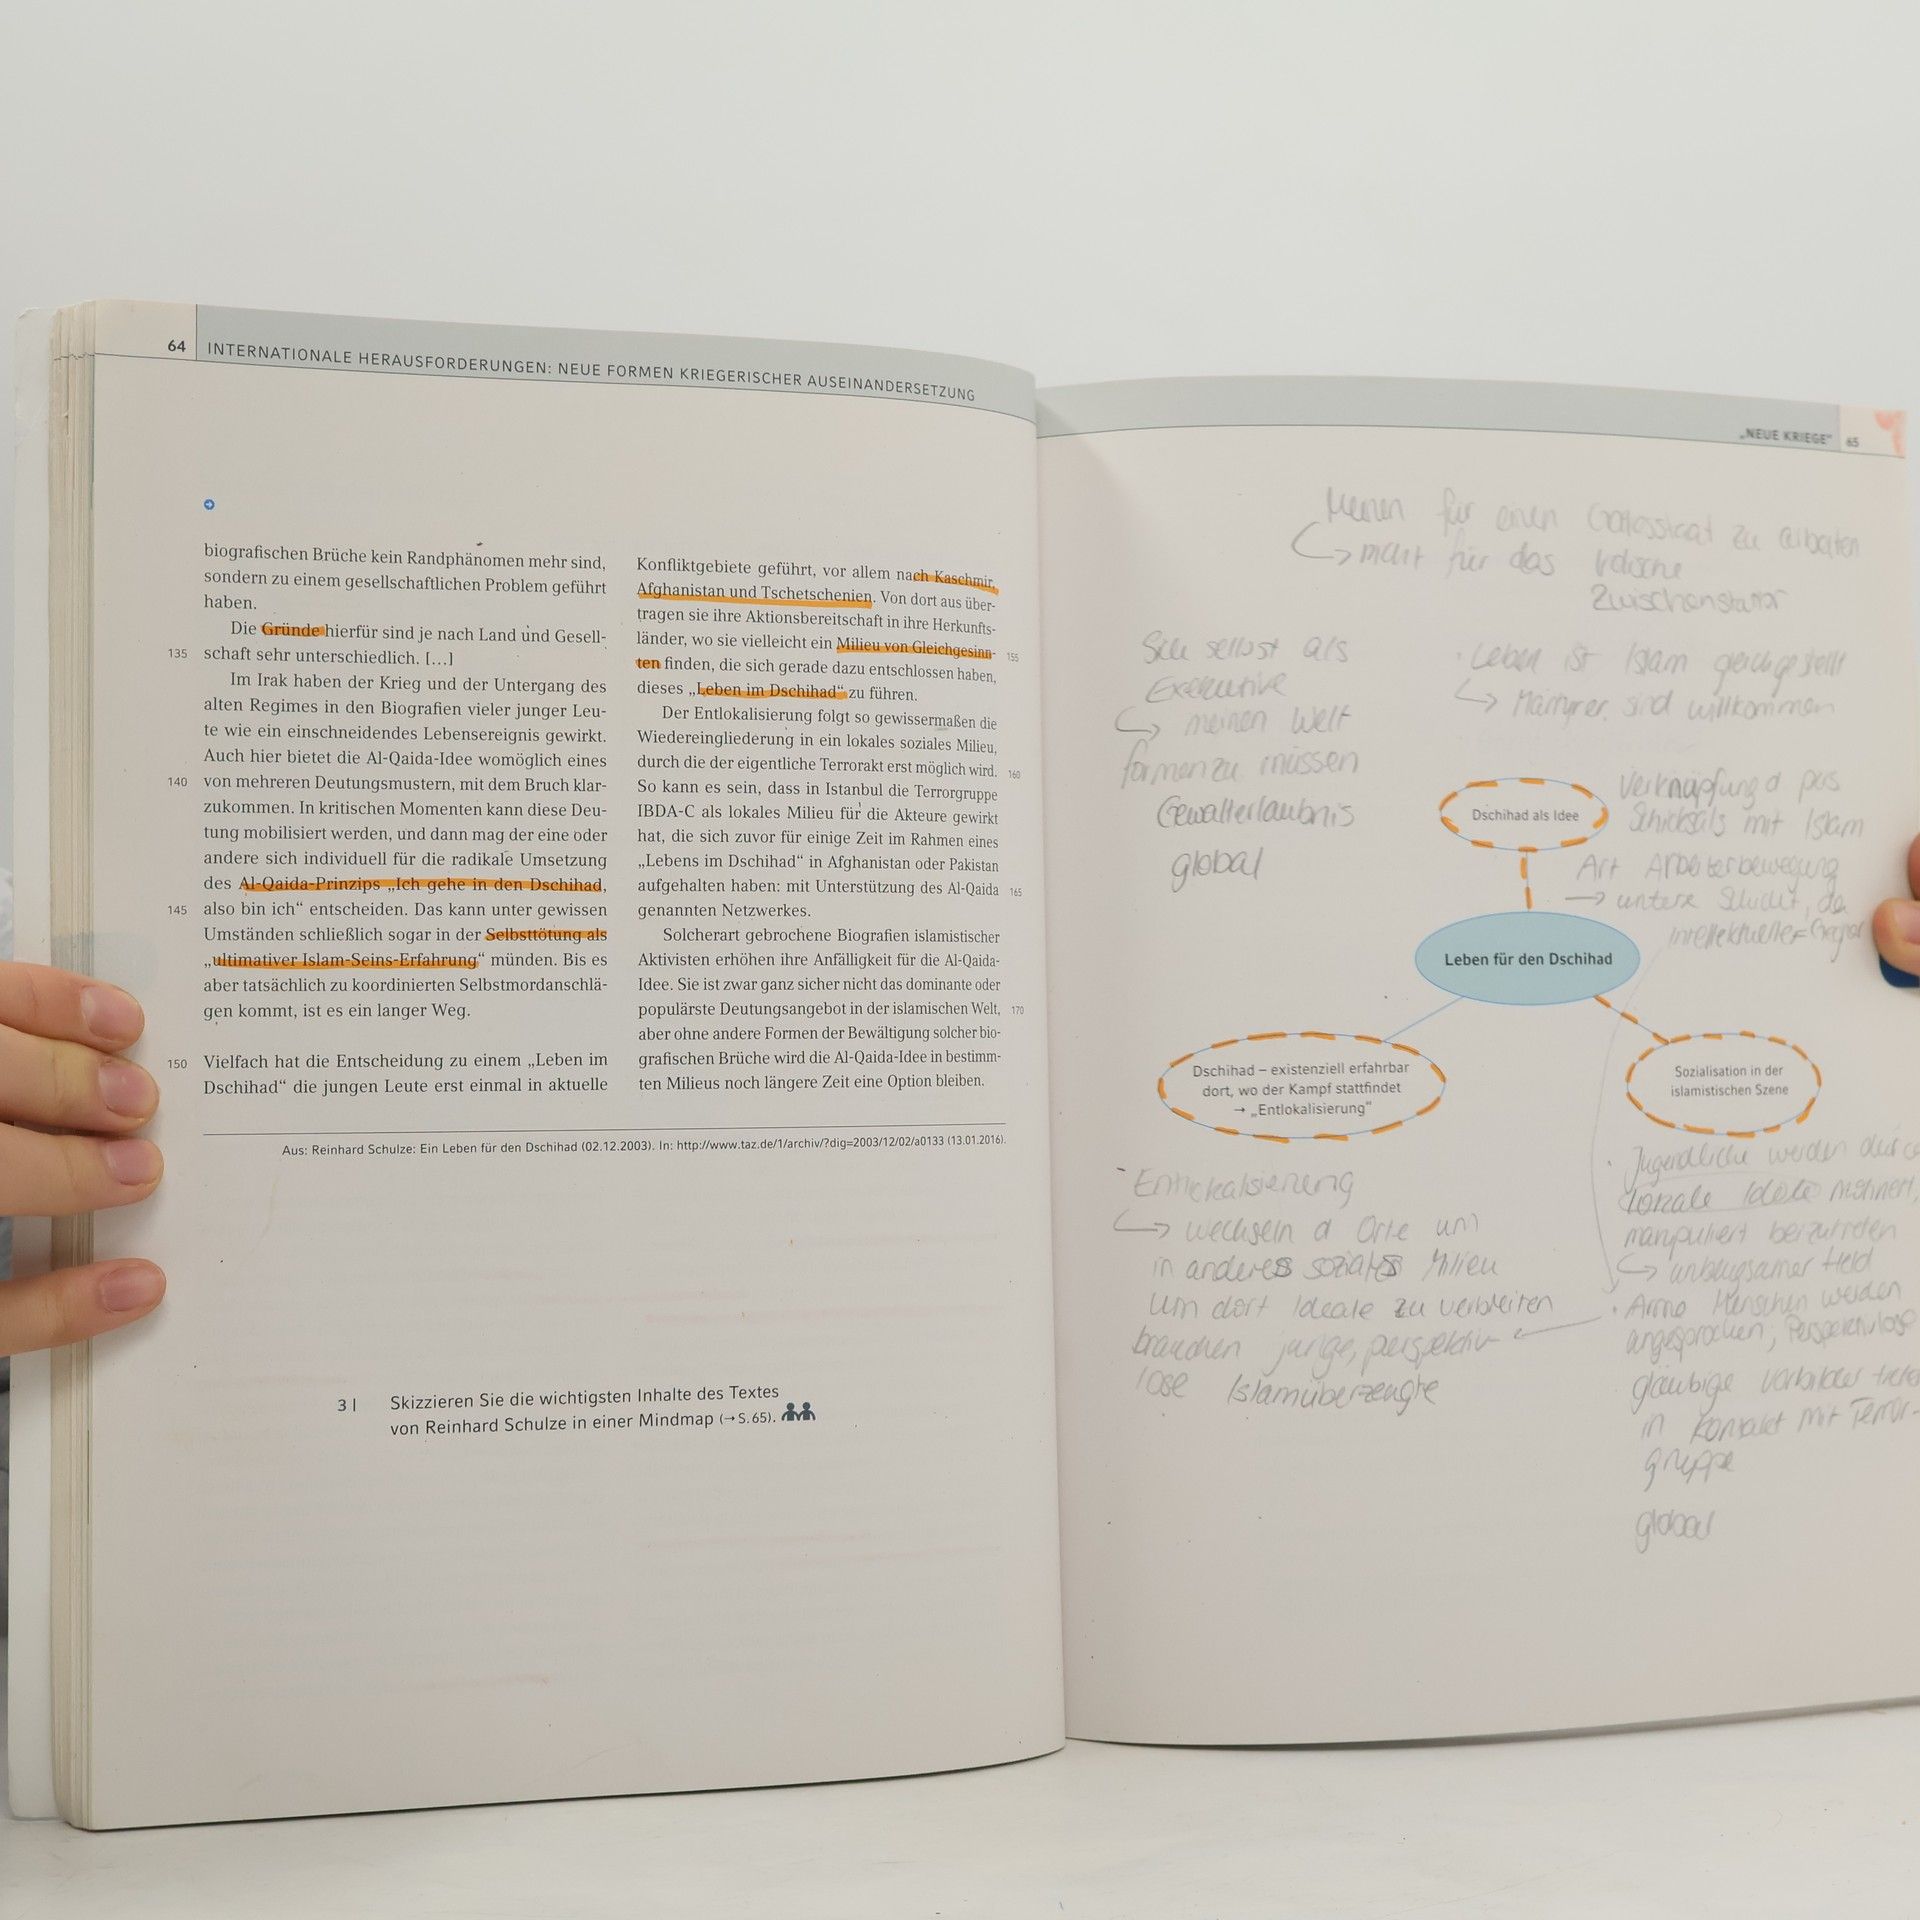 64
INTERNATIONALE HERAUSFORDERUNGEN: NEUE FORMEN KRIEGERISCHER AUSEINANDERSETZUNG
biografischen Brüche kein Randphänomen mehr sind,
sondern zu einem gesellschaftlichen Problem geführt
haben.
Die Gründe hierfür sind je nach Land und Gesell-
135 schaft sehr unterschiedlich. [...]
Im Irak haben der Krieg und der Untergang des
alten Regimes in den Biografien vieler junger Leu-
te wie ein einschneidendes Lebensereignis gewirkt.
Auch hier bietet die Al-Qaida-Idee womöglich eines
140 von mehreren Deutungsmustern, mit dem Bruch klar-
zukommen. In kritischen Momenten kann diese Deu-
tung mobilisiert werden, und dann mag der eine oder
andere sich individuell für die radikale Umsetzung
des Al-Qaida-Prinzips „Ich gehe in den Dschihad,
145 also bin ich“ entscheiden. Das kann unter gewissen
Umständen schließlich sogar in der Selbsttötung als
„ultimativer Islam-Seins-Erfahrung“ münden. Bis es
aber tatsächlich zu koordinierten Selbstmordanschlä-
gen kommt, ist es ein langer Weg.
150 Vielfach hat die Entscheidung zu einem „Leben im
Dschihad“ die jungen Leute erst einmal in aktuelle
Konfliktgebiete geführt, vor allem nach Kaschmir,
Afghanistan und Tschetschenien. Von dort aus über-
tragen sie ihre Aktionsbereitschaft in ihre Herkunfts-
länder, wo sie vielleicht ein Milieu von Gleichgesinn- 155
ten finden, die sich gerade dazu entschlossen haben,
dieses „Leben im Dschihad“ zu führen.
Der Entlokalisierung folgt so gewissermaßen die
Wiedereingliederung in ein lokales soziales Milieu,
durch die der eigentliche Terrorakt erst möglich wird. 160
So kann es sein, dass in Istanbul die Terrorgruppe
IBDA-C als lokales Milieu für die Akteure gewirkt
hat, die sich zuvor für einige Zeit im Rahmen eines
„Lebens im Dschihad“ in Afghanistan oder Pakistan
aufgehalten haben: mit Unterstützung des Al-Qaida 165
genannten Netzwerkes.
Solcherart gebrochene Biografien islamistischer
Aktivisten erhöhen ihre Anfälligkeit für die Al-Qaida-
Idee. Sie ist zwar ganz sicher nicht das dominante oder
populärste Deutungsangebot in der islamischen Welt, 170
aber ohne andere Formen der Bewältigung solcher bio-
grafischen Brüche wird die Al-Qaida-Idee in bestimm-
ten Milieus noch längere Zeit eine Option bleiben.
Aus: Reinhard Schulze: Ein Leben für den Dschihad (02.12.2003). In: http://www.taz.de/1/archiv/?dig=2003/12/02/a0133 (13.01.2016).
3 | Skizzieren Sie die wichtigsten Inhalte des Textes
von Reinhard Schulze in einer Mindmap (→ S. 65).
„NEUE KRIEGE“ 65
Meinen für einen Gottesstaat zu arbeiten
nicht für das irdische
Sich selbst als
Exekutive
→ meinen Welt
formen zu müssen
Gewalterlaubnis
global
· Leben ist Islam gleichgestellt
→ Märtyrer sind willkommen
Dschihad als Idee
Verknüpfung d pers
Schicksals mit Islam
Art Arbeiterbewegung
→ untere Schicht, da
Leben für den Dschihad
Dschihad – existenziell erfahrbar
dort, wo der Kampf stattfindet
→ „Entlokalisierung“
Sozialisation in der
islamistischen Szene
- Entlokalisierung
→ wechseln d Orte um
in anderes soziales Milieu
um dort Ideale zu verbreiten
brauchen junge, perspektiv-
lose Islamüberzeugte
· Jugendliche werden durch
lokale Idole
manipuliert beizutreten
→ unbeugsamer Held
· Arme Menschen werden
angesprochen, Perspektivlose
gläubige Vorbilder treten
in Kontakt mit Terror-
gruppe
global